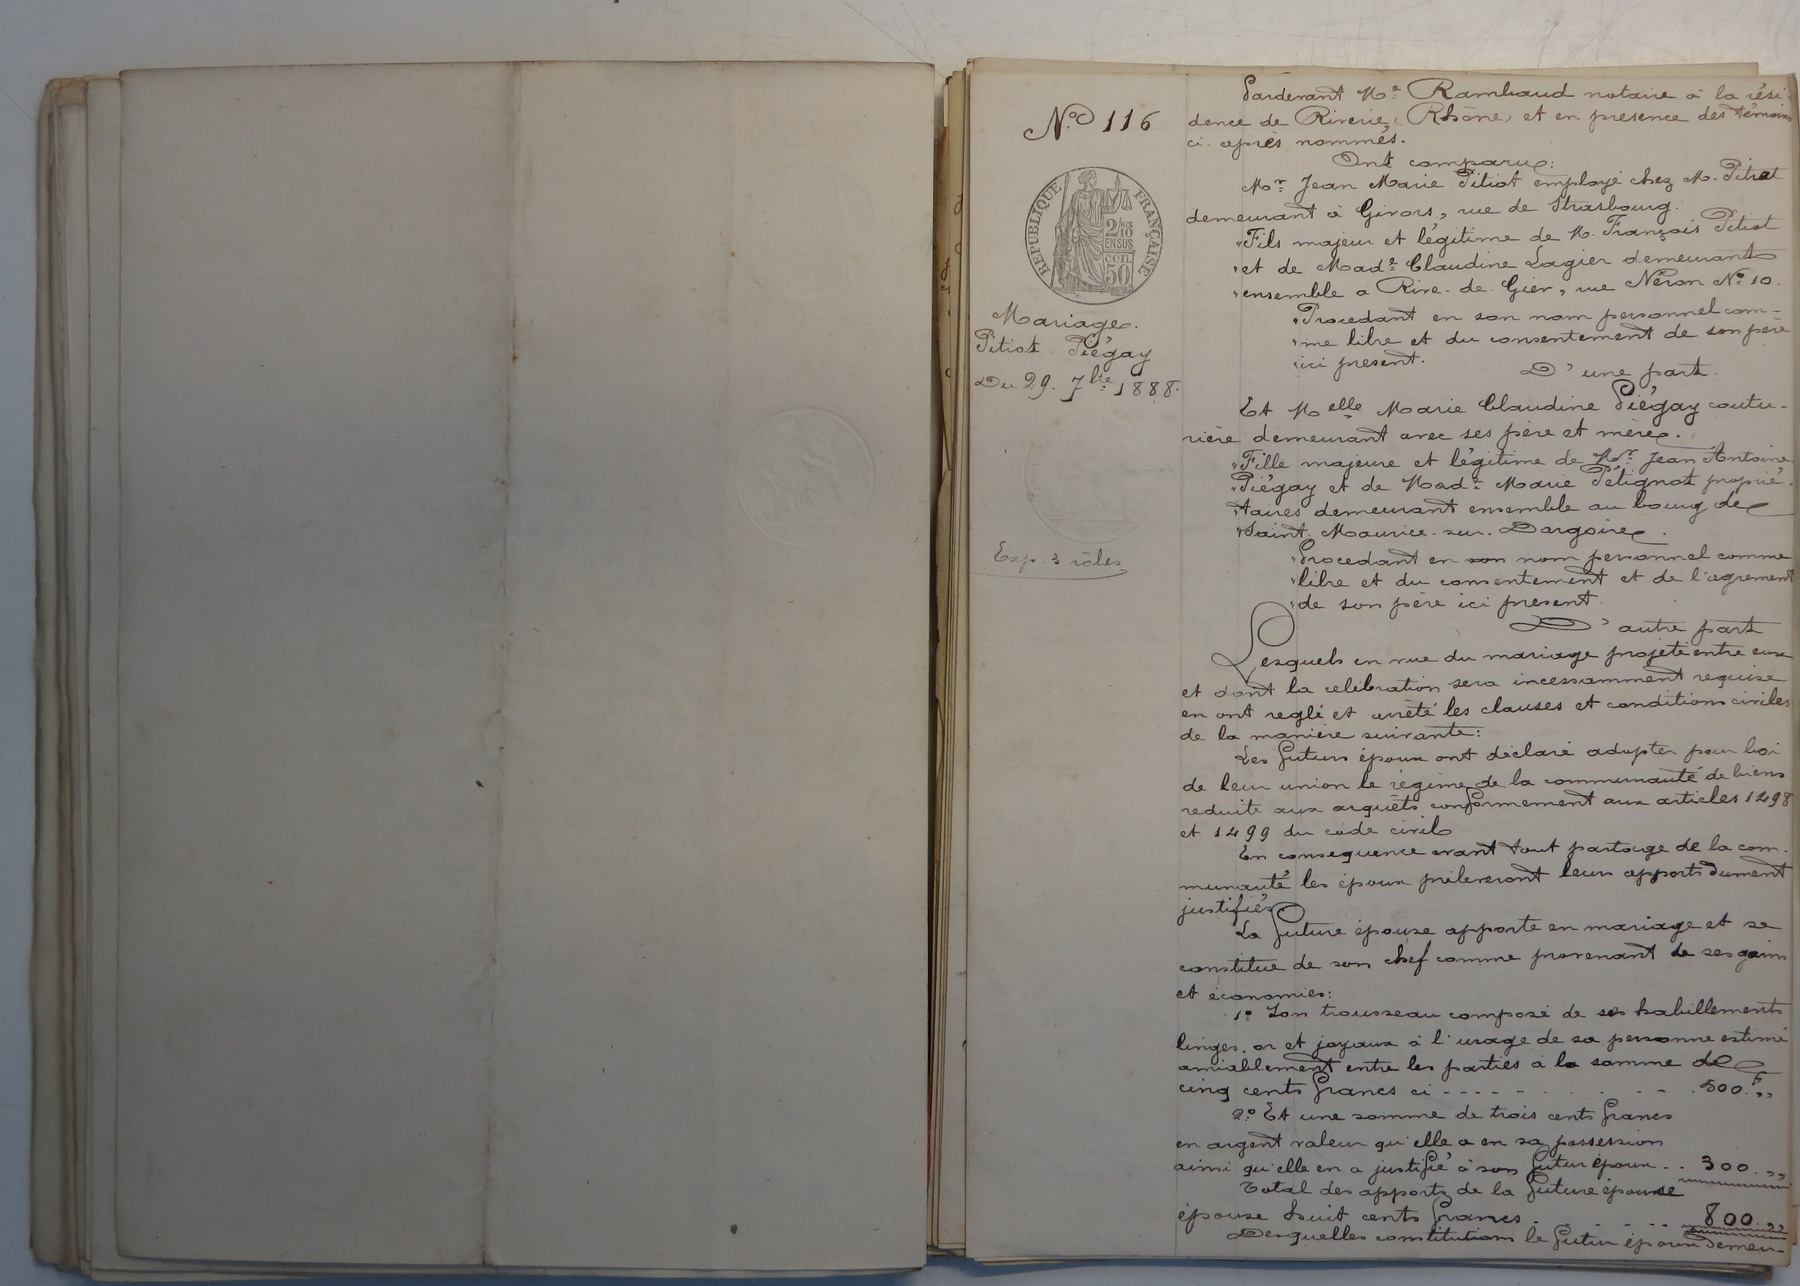 N° 116
RÉPUBLIQUE FRANÇAISE
2/10 EN SUS
50 cen
Mariage.
Pitiot. Piégay
Du 29. 7bre 1888.
Exp. 3 rôles
Pardevant Me Rambaud notaire à la rési-
dence de Riverie, (Rhône) et en presence des témoins
ci. après nommés.
Ont comparu:
Mr Jean Marie Pitiot employé chez M. Pitrat
demeurant à Givors, rue de Strasbourg.
"Fils majeur et légitime de M. François Pitiot
"et de Made Claudine Lagier demeurant
"ensemble à Rive. de. Gier, rue Néron No 10.
"Procedant en son nom personnel com-
"me libre et du consentement de son père
"ici present.
D'une part.
Et Melle Marie Claudine Piégay coutu-
rière demeurant avec ses père et mère.
"Fille majeure et légitime de Mr Jean Antoine
"Piégay et de Made Marie Pélignot proprié-
"taires demeurant ensemble au bourg de
"Saint. Maurice. sur. Dargoire.
"Procedant en son nom personnel comme
"libre et du consentement et de l'agrement
"de son père ici present.
D'autre part
Lesquels en vue du mariage projeté entre eux
et dont la celébration sera incessamment requise
en ont reglé et arrêté les clauses et conditions civiles
de la manière suivante:
Les futurs époux ont déclaré adopter pour loi
de leur union le régime de la communauté de biens
reduite aux acquêts conformement aux articles 1498
et 1499 du code civil
En consequence avant tout partage de la com-
munauté les époux prélèveront leurs apports dument
justifiés.
La future épouse apporte en mariage et se
constitue de son chef comme provenant de ses gains
et économies:
1° Son trousseau composé de ses habillements
linges, or et joyaux à l'usage de sa personne estimé
amiablement entre les parties à la somme de
cinq cents francs ci - - - - 500.f "
2° Et une somme de trois cents francs
en argent valeur qu'elle a en sa possession
ainsi qu'elle en a justifié à son futur époux . . 300. "
Total des apports de la future épouse
épouse huit cents francs . . . . 800. "
Desquelles constitutions le futur époux demeu-